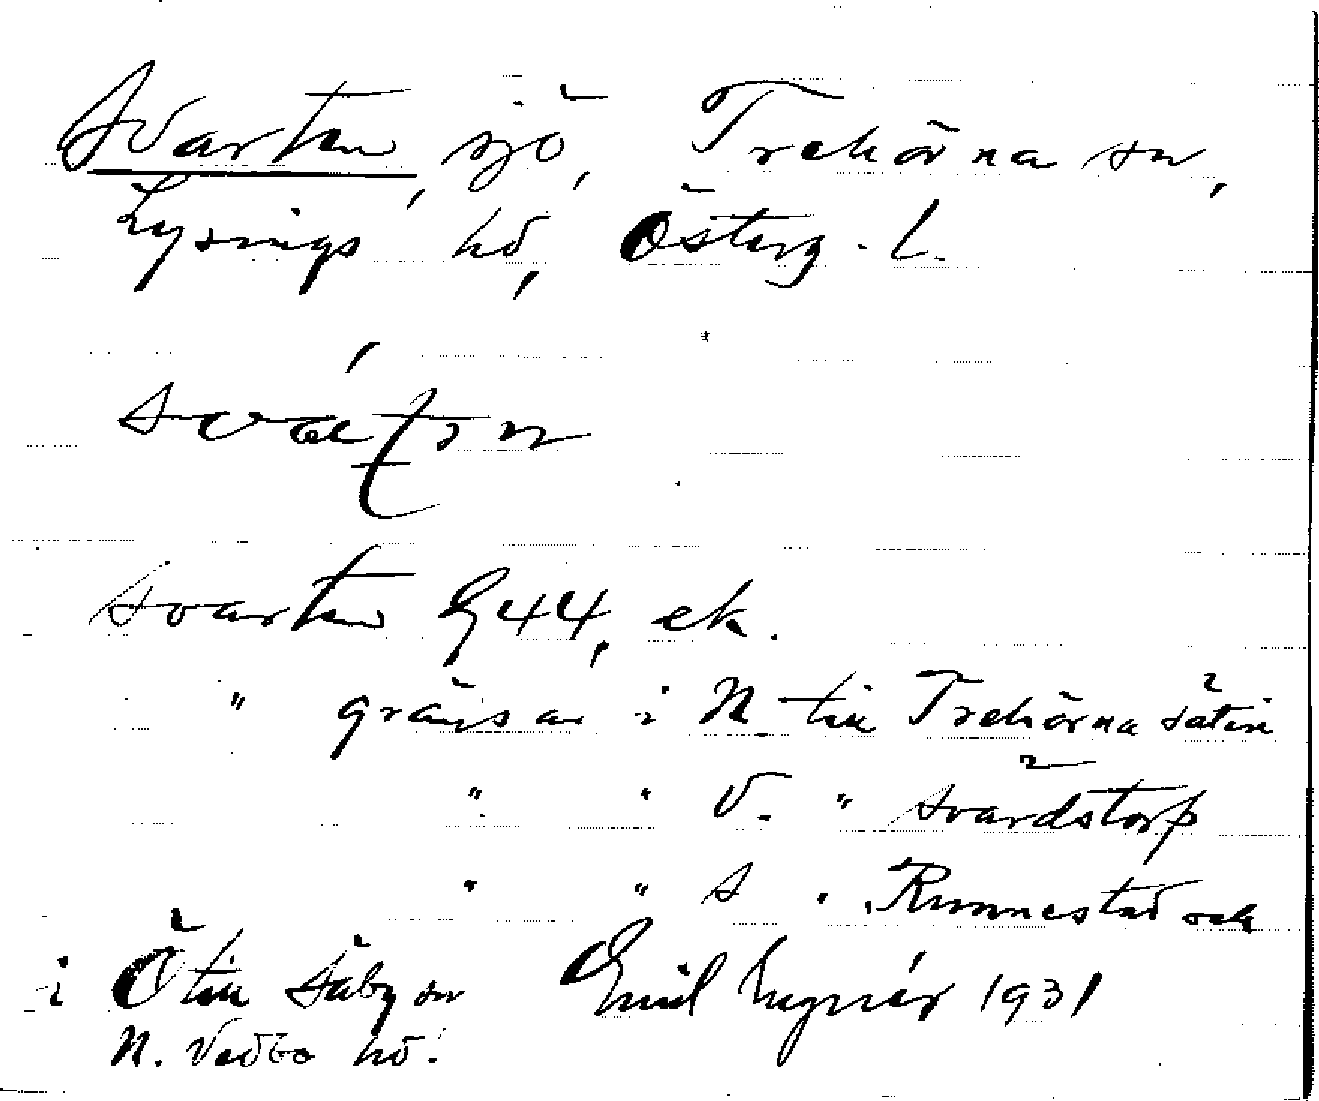 Svarten, sjö, Trehörna sn,
Lysings hd, Österg. L.
Svarten G 44, ek.
" gränsar i N till Trehörna säteri
" " V. " Svärdstorp
" " S " Runnestad och
i Ö till Säby sn Emil 1931
N. Vedbo hd.